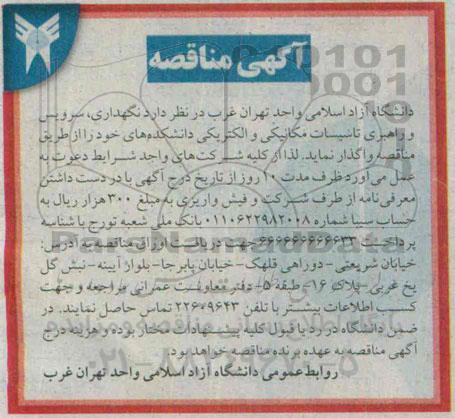 آگهی مناقصه
دانشگاه آزاد اسلامی واحد تهران غرب در نظر دارد نگهداری، سرویس
و راهبری تاسیسات مکانیکی و الکتریکی دانشکده‌های خود را از طریق
مناقصه واگذار نماید. لذا از کلیه شرکت‌های واجد شرایط دعوت به
عمل می‌آورد ظرف مدت ۱۰ روز از تاریخ درج آگهی با در دست داشتن
معرفی‌نامه از طرف شرکت و فیش واریزی به مبلغ ۳۰۰ هزار ریال به
حساب سیبا شماره ۰۱۱۰۶۲۲۹۸۲۰۰۸ بانک ملی شعبه تورج با شناسه
پرداخت جهت دریافت اوراق مناقصه به آدرس:
خیابان شریعتی - دوراهی قلهک - خیابان پابرجا - بلوار آیینه - نبش گل
یخ غربی - پلاک ۱۶ - طبقه ۵ - دفتر معاونت عمرانی مراجعه و جهت
کسب اطلاعات بیشتر با تلفن ۲۲۶۰۹۶۴۳ تماس حاصل نمایند. در
ضمن دانشگاه در رد یا قبول کلیه پیشنهادات مختار بوده و هزینه درج
آگهی مناقصه به عهده برنده مناقصه خواهد بود.
روابط عمومی دانشگاه آزاد اسلامی واحد تهران غرب